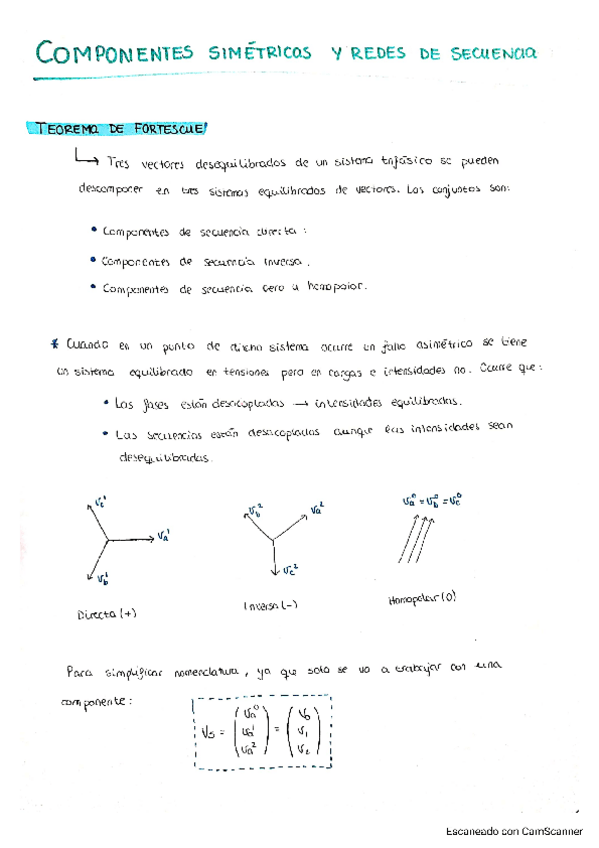 COMPONENTES SIMÉTRICAS Y REDES DE SECUENCIA
TEOREMA DE FORTESCUE
Tres vectores desequilibrados de un sistema trifásico se pueden
descomponer en tres sistemas equilibrados de vectores. Los conjuntos son:
• Componentes de secuencia directa:
• Componentes de secuencia inversa.
• Componentes de secuencia cero u homopolar.
* Cuando en un punto de dicho sistema ocurre un fallo asimétrico se tiene
un sistema equilibrado en tensiones pero en cargas e intensidades no. Ocurre que:
• Las fases están desacopladas → intensidades equilibradas.
• Las secuencias están desacopladas aunque las intensidades sean
desequilibradas.
Vc¹
Va¹
Vb¹
Directa (+)
Vb²
Va²
Vc²
Inversa (-)
Va⁰ = Vb⁰ = Vc⁰
Homopolar (0)
Para simplificar nomenclatura, ya que solo se va a trabajar con una
componente:
Vs = (Va⁰ Va¹ Va²) = (V0 V1 V2)
Escaneado con CamScanner